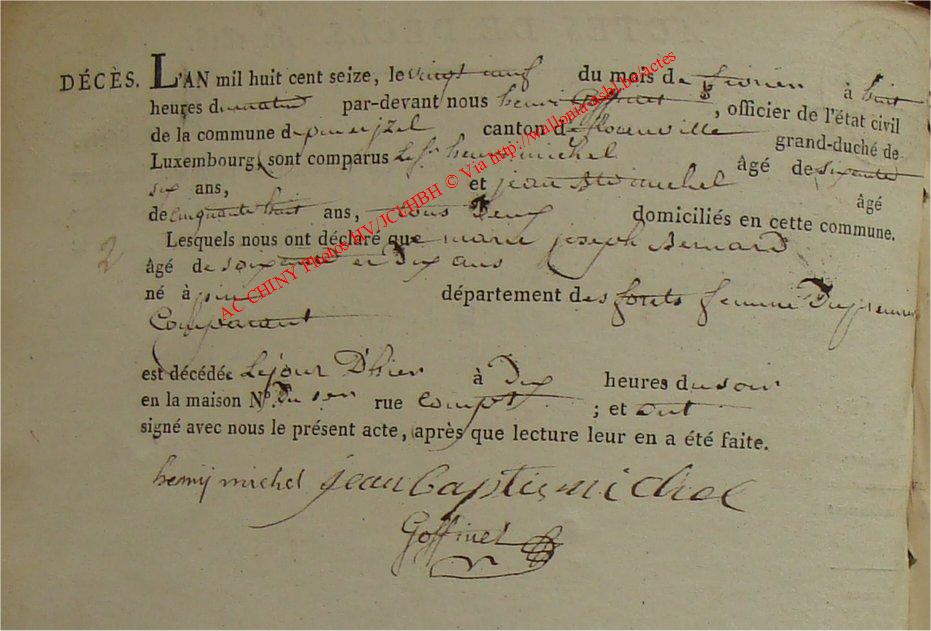 DÉCÈS. L'AN mil huit cent seize, le vingt neuf du mois de fevrier à huit
heures du matin par-devant nous henri Goffinet, officier de l'état civil
de la commune de canton de florenville grand-duché de
Luxembourg, sont comparus Le Sr henri michel âgé de soixante
six ans, et jean Bte michel âgé
de cinquante huit ans, tous Deux domiciliés en cette commune.
Lesquels nous ont déclaré que marie joseph Bernard
2
âgé de soixante et Dix ans
né à département des forets femme Du premier
Comparant
est décédée Le jour D'hier à Dix heures du soir
en la maison N°. Du 1er rue compt ; et ont
signé avec nous le présent acte, après que lecture leur en a été faite.
henry michel jean baptis michel
Goffinet
AC CHINY Photos HV/JCI/HBH © Via http://wallonia.asbl.be/actes